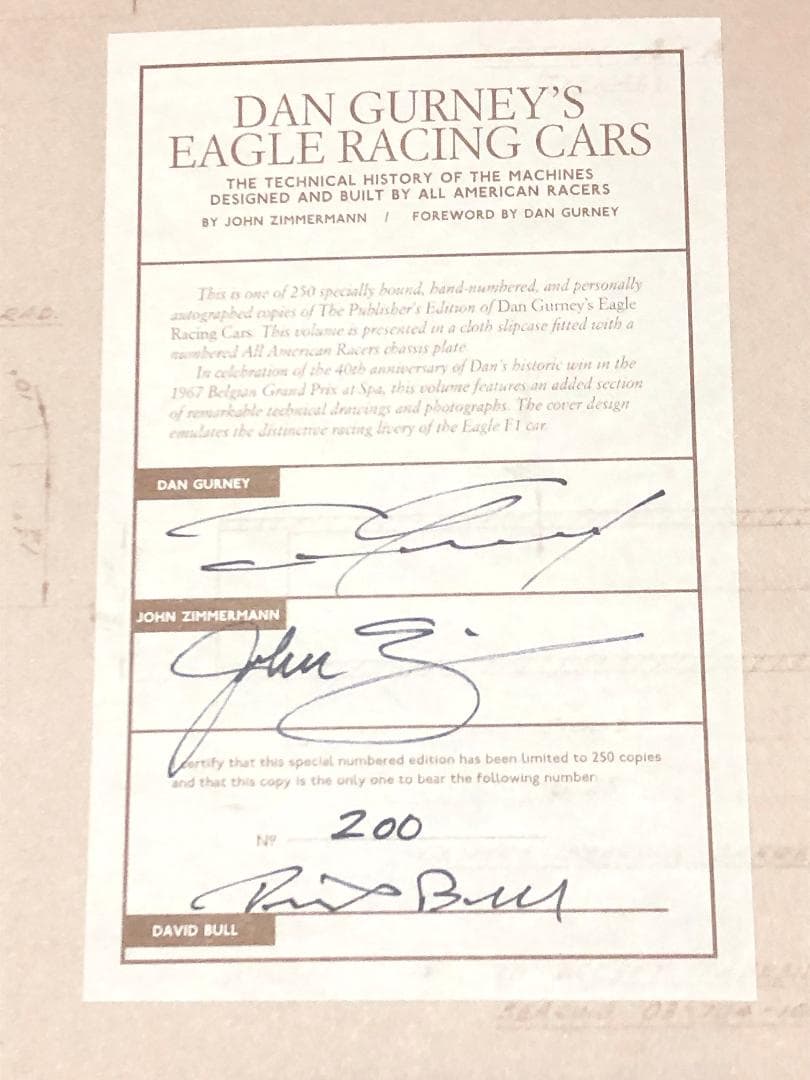 DAN GURNEY'S
EAGLE RACING CARS
THE TECHNICAL HISTORY OF THE MACHINES
DESIGNED AND BUILT BY ALL AMERICAN RACERS
BY JOHN ZIMMERMANN / FOREWORD BY DAN GURNEY
This is one of 250 specially bound, hand-numbered, and personally
autographed copies of The Publisher's Edition of Dan Gurney's Eagle
Racing Cars. This volume is presented in a cloth slipcase fitted with a
numbered All American Racers chassis plate.
In celebration of the 40th anniversary of Dan's historic win in the
1967 Belgian Grand Prix at Spa, this volume features an added section
of remarkable technical drawings and photographs. The cover design
emulates the distinctive racing livery of the Eagle F1 car.
DAN GURNEY
JOHN ZIMMERMANN
John
I certify that this special numbered edition has been limited to 250 copies
and that this copy is the only one to bear the following number:
Nº 200
David Bull
DAVID BULL